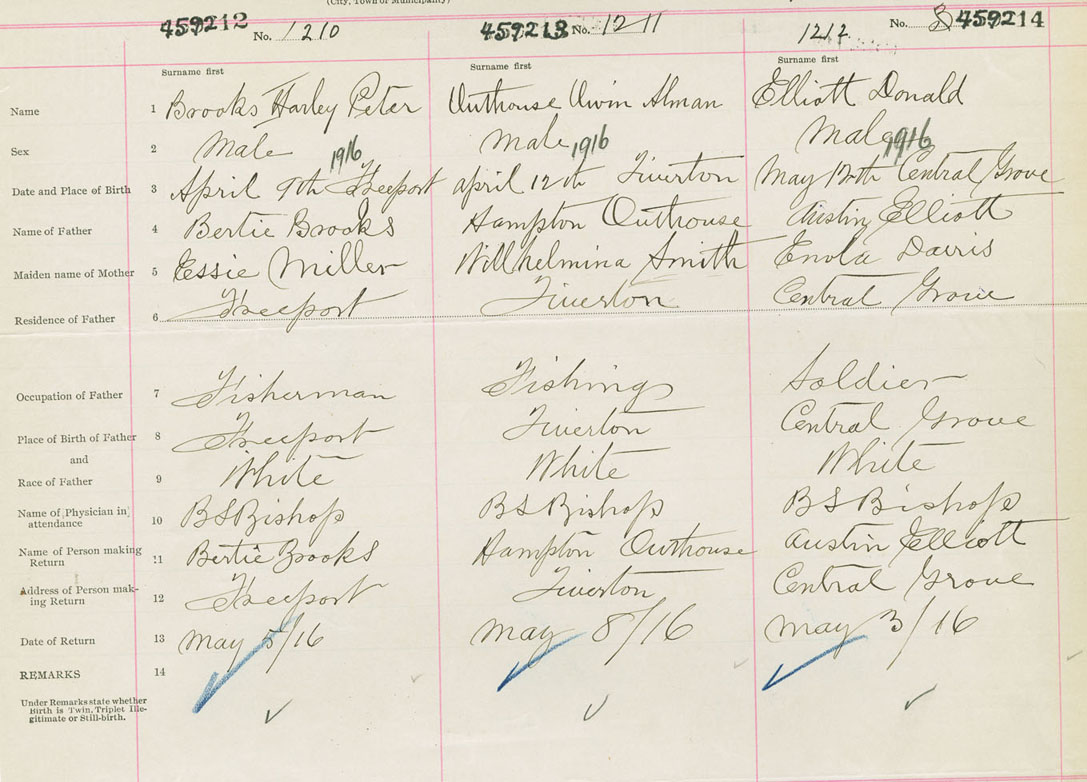 (City, Town or Municipality)
459212 No. 1210 459213 No. 1211 1212 No. 8 459214
Surname first Surname first Surname first
Name 1 Brooks Harley Peter Outhouse Alman Elliott Donald
Sex 2 Male Male Male
1916 1916 1916
Date and Place of Birth 3 April 9th Freeport april 12th Tiverton May 12th Central Grove
Name of Father 4 Bertie Brooks Hampton Outhouse Austin Elliott
Maiden name of Mother 5 Essie Miller Willhelmina Smith Enola Davis
Residence of Father 6 Freeport Tiverton Central Grove
Occupation of Father 7 Fisherman Fishing Soldier
Place of Birth of Father 8 Freeport Tiverton Central Grove
and
Race of Father 9 White White White
Name of Physician in
attendance 10 BS Bishop BS Bishop BS Bishop
Name of Person making
Return 11 Bertie Brooks Hampton Outhouse Austin Elliott
Address of Person mak-
ing Return 12 Freeport Tiverton Central Grove
Date of Return 13 may 5/16 may 8/16 may 3/16
REMARKS 14
Under Remarks state whether
Birth is Twin, Triplet Ille-
gitimate or Still-birth.